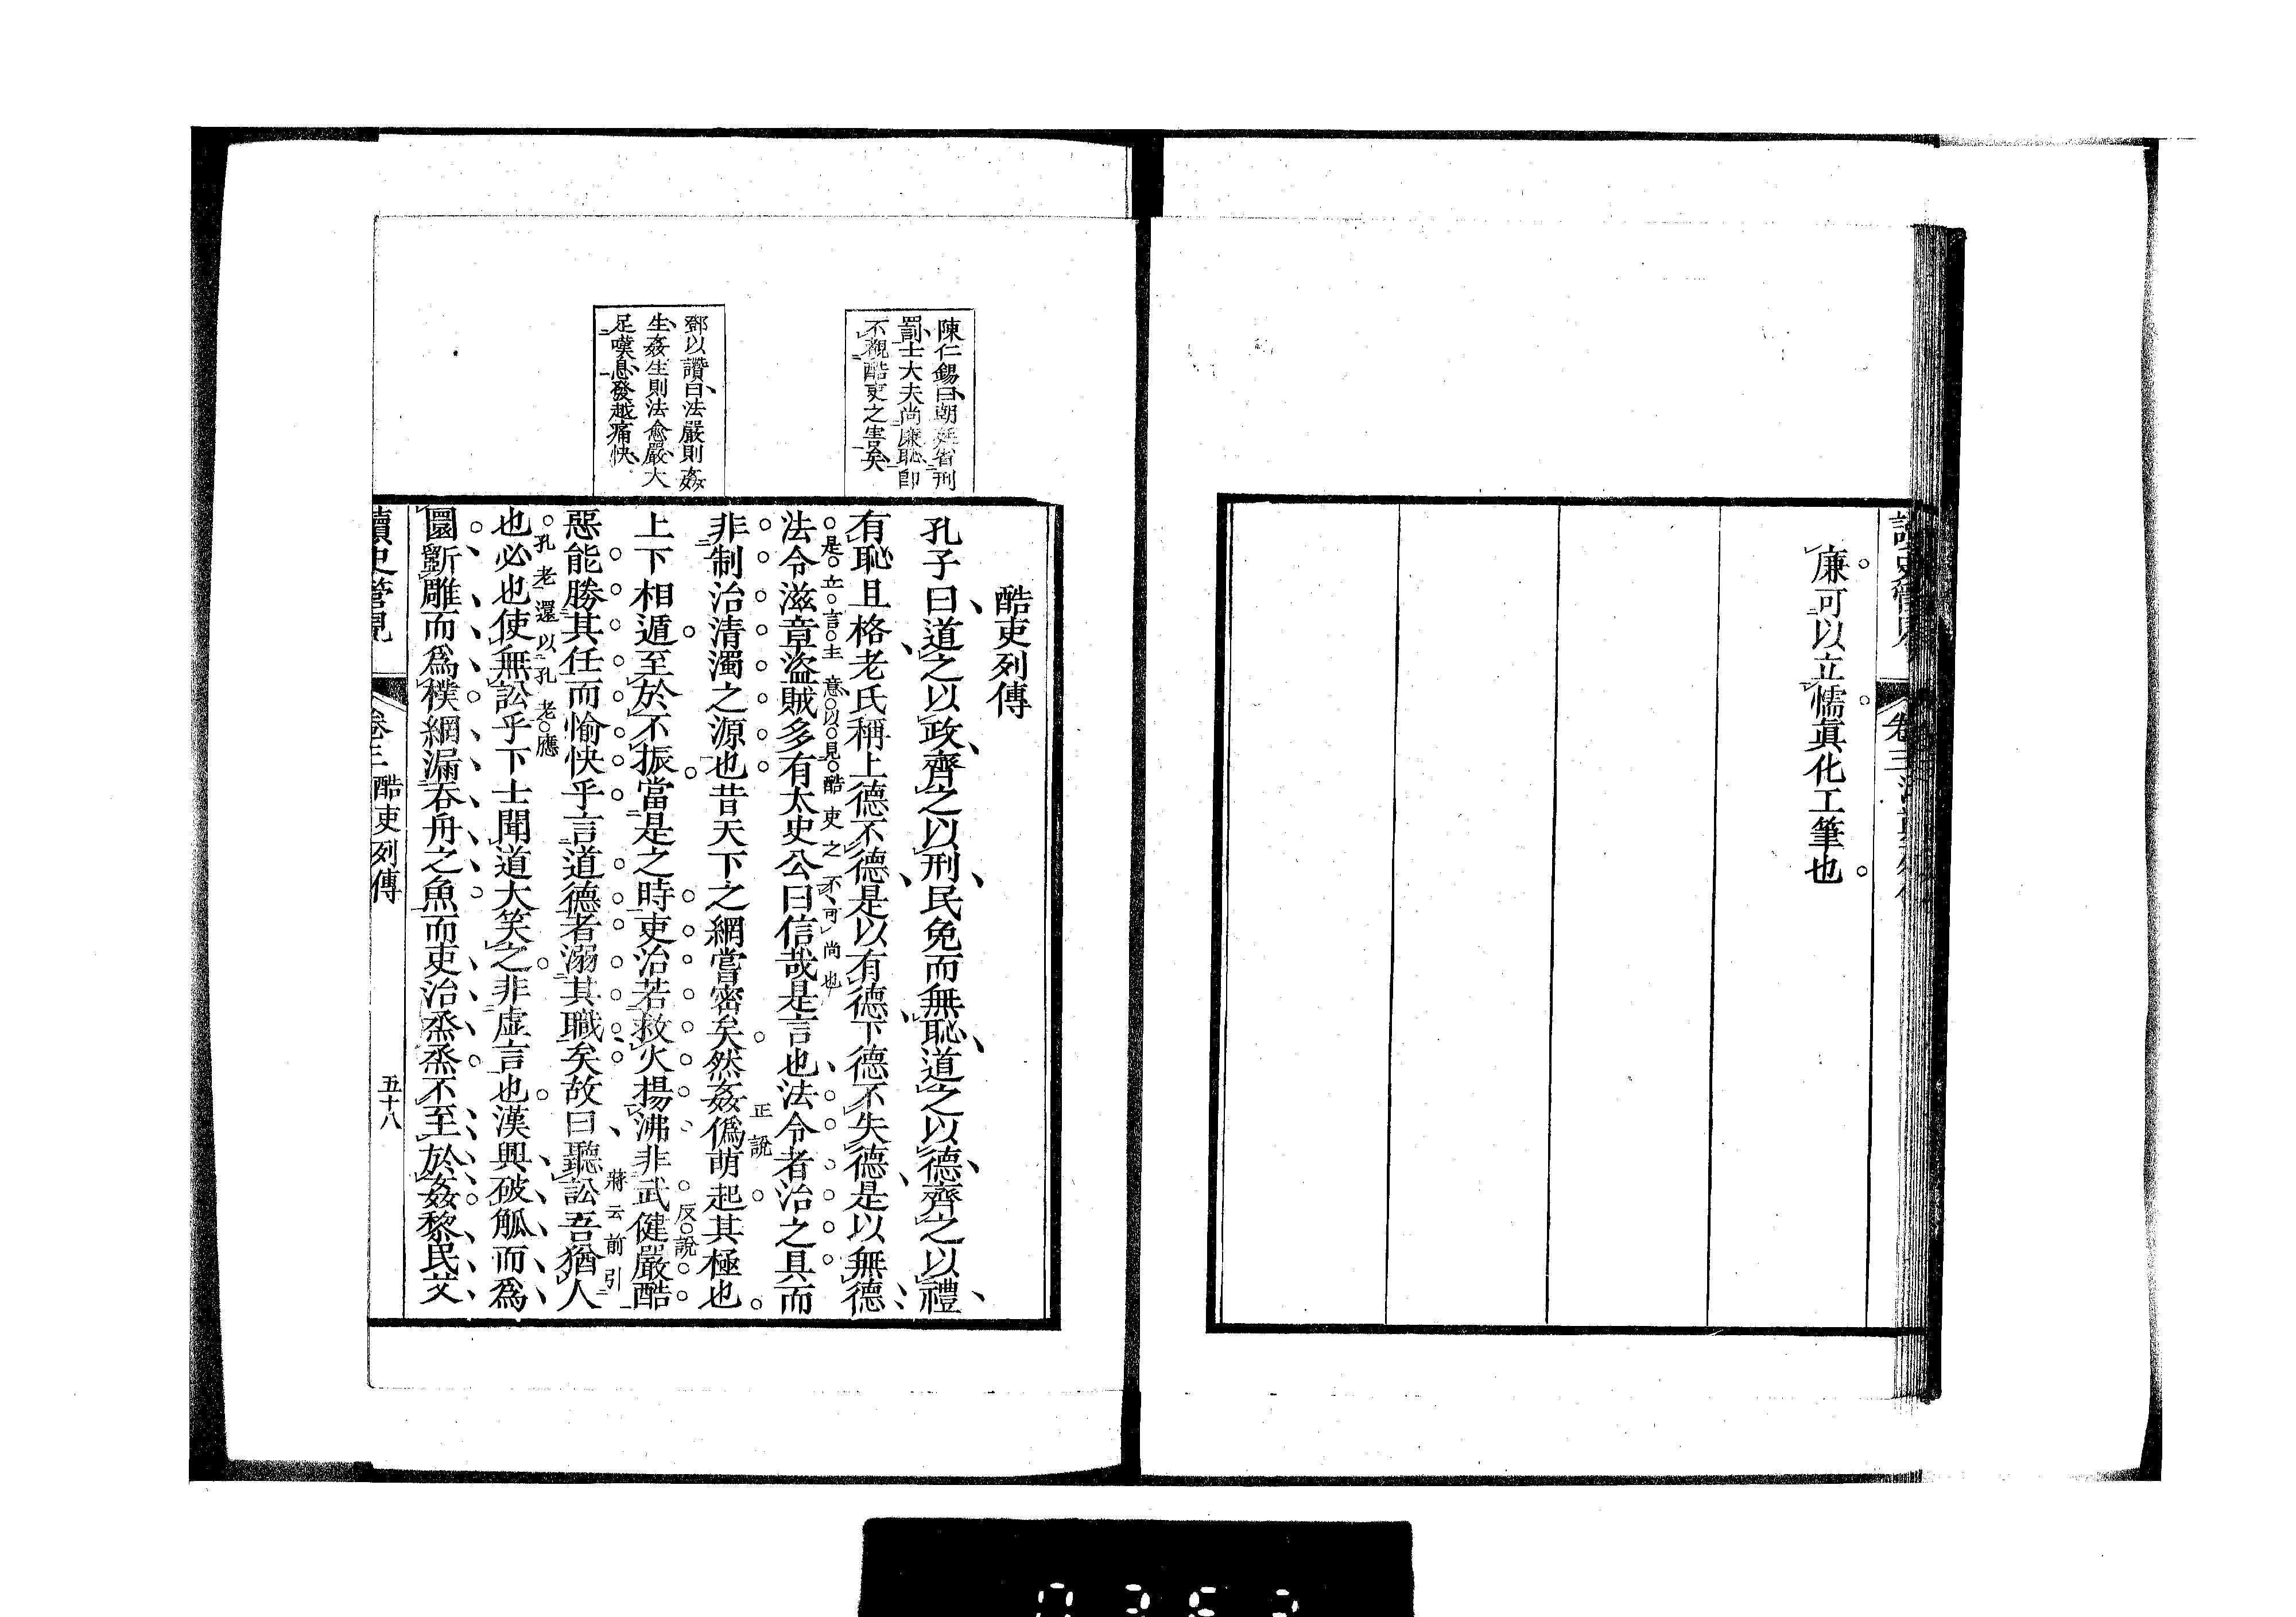 廉可以立懦眞化工筆也
陳仁錫曰朝廷省刑
罰士大夫尚廉恥卽
不觀酷吏之害矣
鄧以讚曰法嚴則姦
生姦生則法愈嚴大
足嘆息發越痛快
酷吏列傳
孔子曰道之以政齊之以刑民免而無恥道之以德齊之以禮
有恥且格老氏稱上德不德是以有德下德不失德是以無德
是立言主意以見酷吏之不可尚也
法令滋章盜賊多有太史公曰信哉是言也法令者治之具而
正說
非制治清濁之源也昔天下之網嘗密矣然姦僞萌起其極也
反說
上下相遁至於不振當是之時吏治若救火揚沸非武健嚴酷
蔣云前引
惡能勝其任而愉快乎言道德者溺其職矣故曰聽訟吾猶人
孔老還以孔老應
也必也使無訟乎下士聞道大笑之非虛言也漢興破觚而爲
圜斲雕而爲樸網漏吞舟之魚而吏治烝烝不至於姦黎民艾
讀史管見
卷三
酷吏列傳
五十八